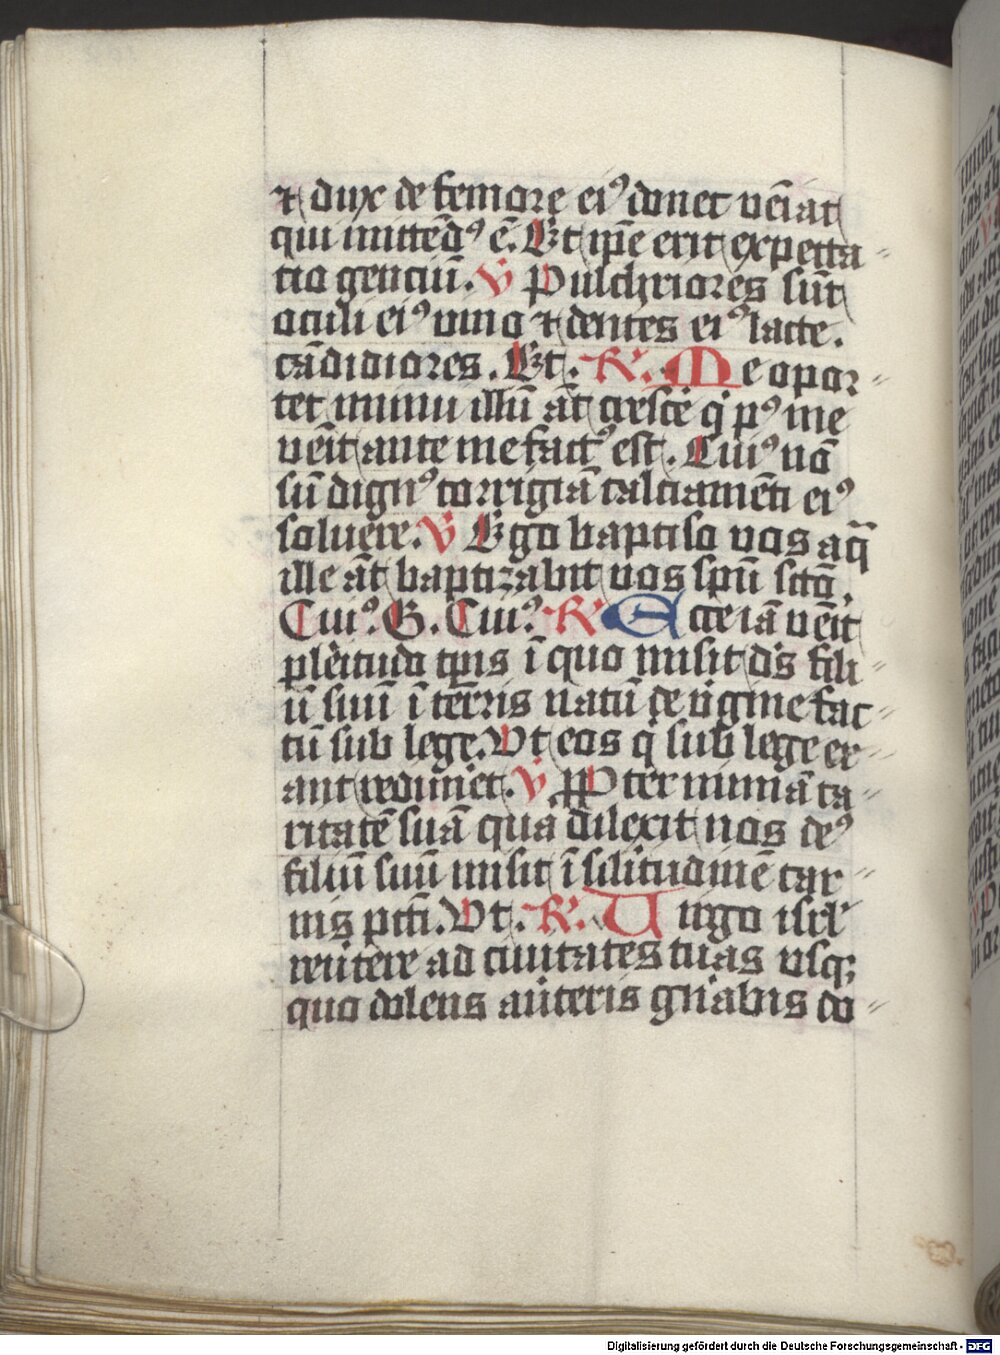 ⁊ dux de femore eiꝰ donet vēiat
qui mittēdꝰ ē. Et ip̄e erit expecta
tio genciū. V̷ Pulchriores sūt
oculi eiꝰ vino ⁊ dentes eiꝰ lacte.
cādidiores. Et. R̷. Me opor
tet minui illū āt cresc̄e q̇ pꝰ me
vēit ante me factꝰ est. Cuiꝰ nō
sū dignꝰ corrigiā calciamēti eiꝰ
soluere. V̷ Ego baptiso vos aq̄
ille āt baptizabit vos spū sctō.
Cuiꝰ. G. Cuiꝰ. R̷ Ecce iā vēit
plēitudo tp̄is ī quo misit d̄s fili
ū suū ī terris natū de v̇gine fac
tū sub lege. Vt eos q̇ sub lege er
ant redimet. V̷ Ꝓpter nimiā ca
ritatē suā qua dilexit nos deꝰ
filiū suū misit ī silitudinē car
nis pcti. Vt. R̷. Uirgo isrl̄
reūtere ad ciuitates tuas vsqꝫ
quo dolens aūteris gn̄abis do
Digitalisierung gefördert durch die Deutsche Forschungsgemeinschaft - DFG